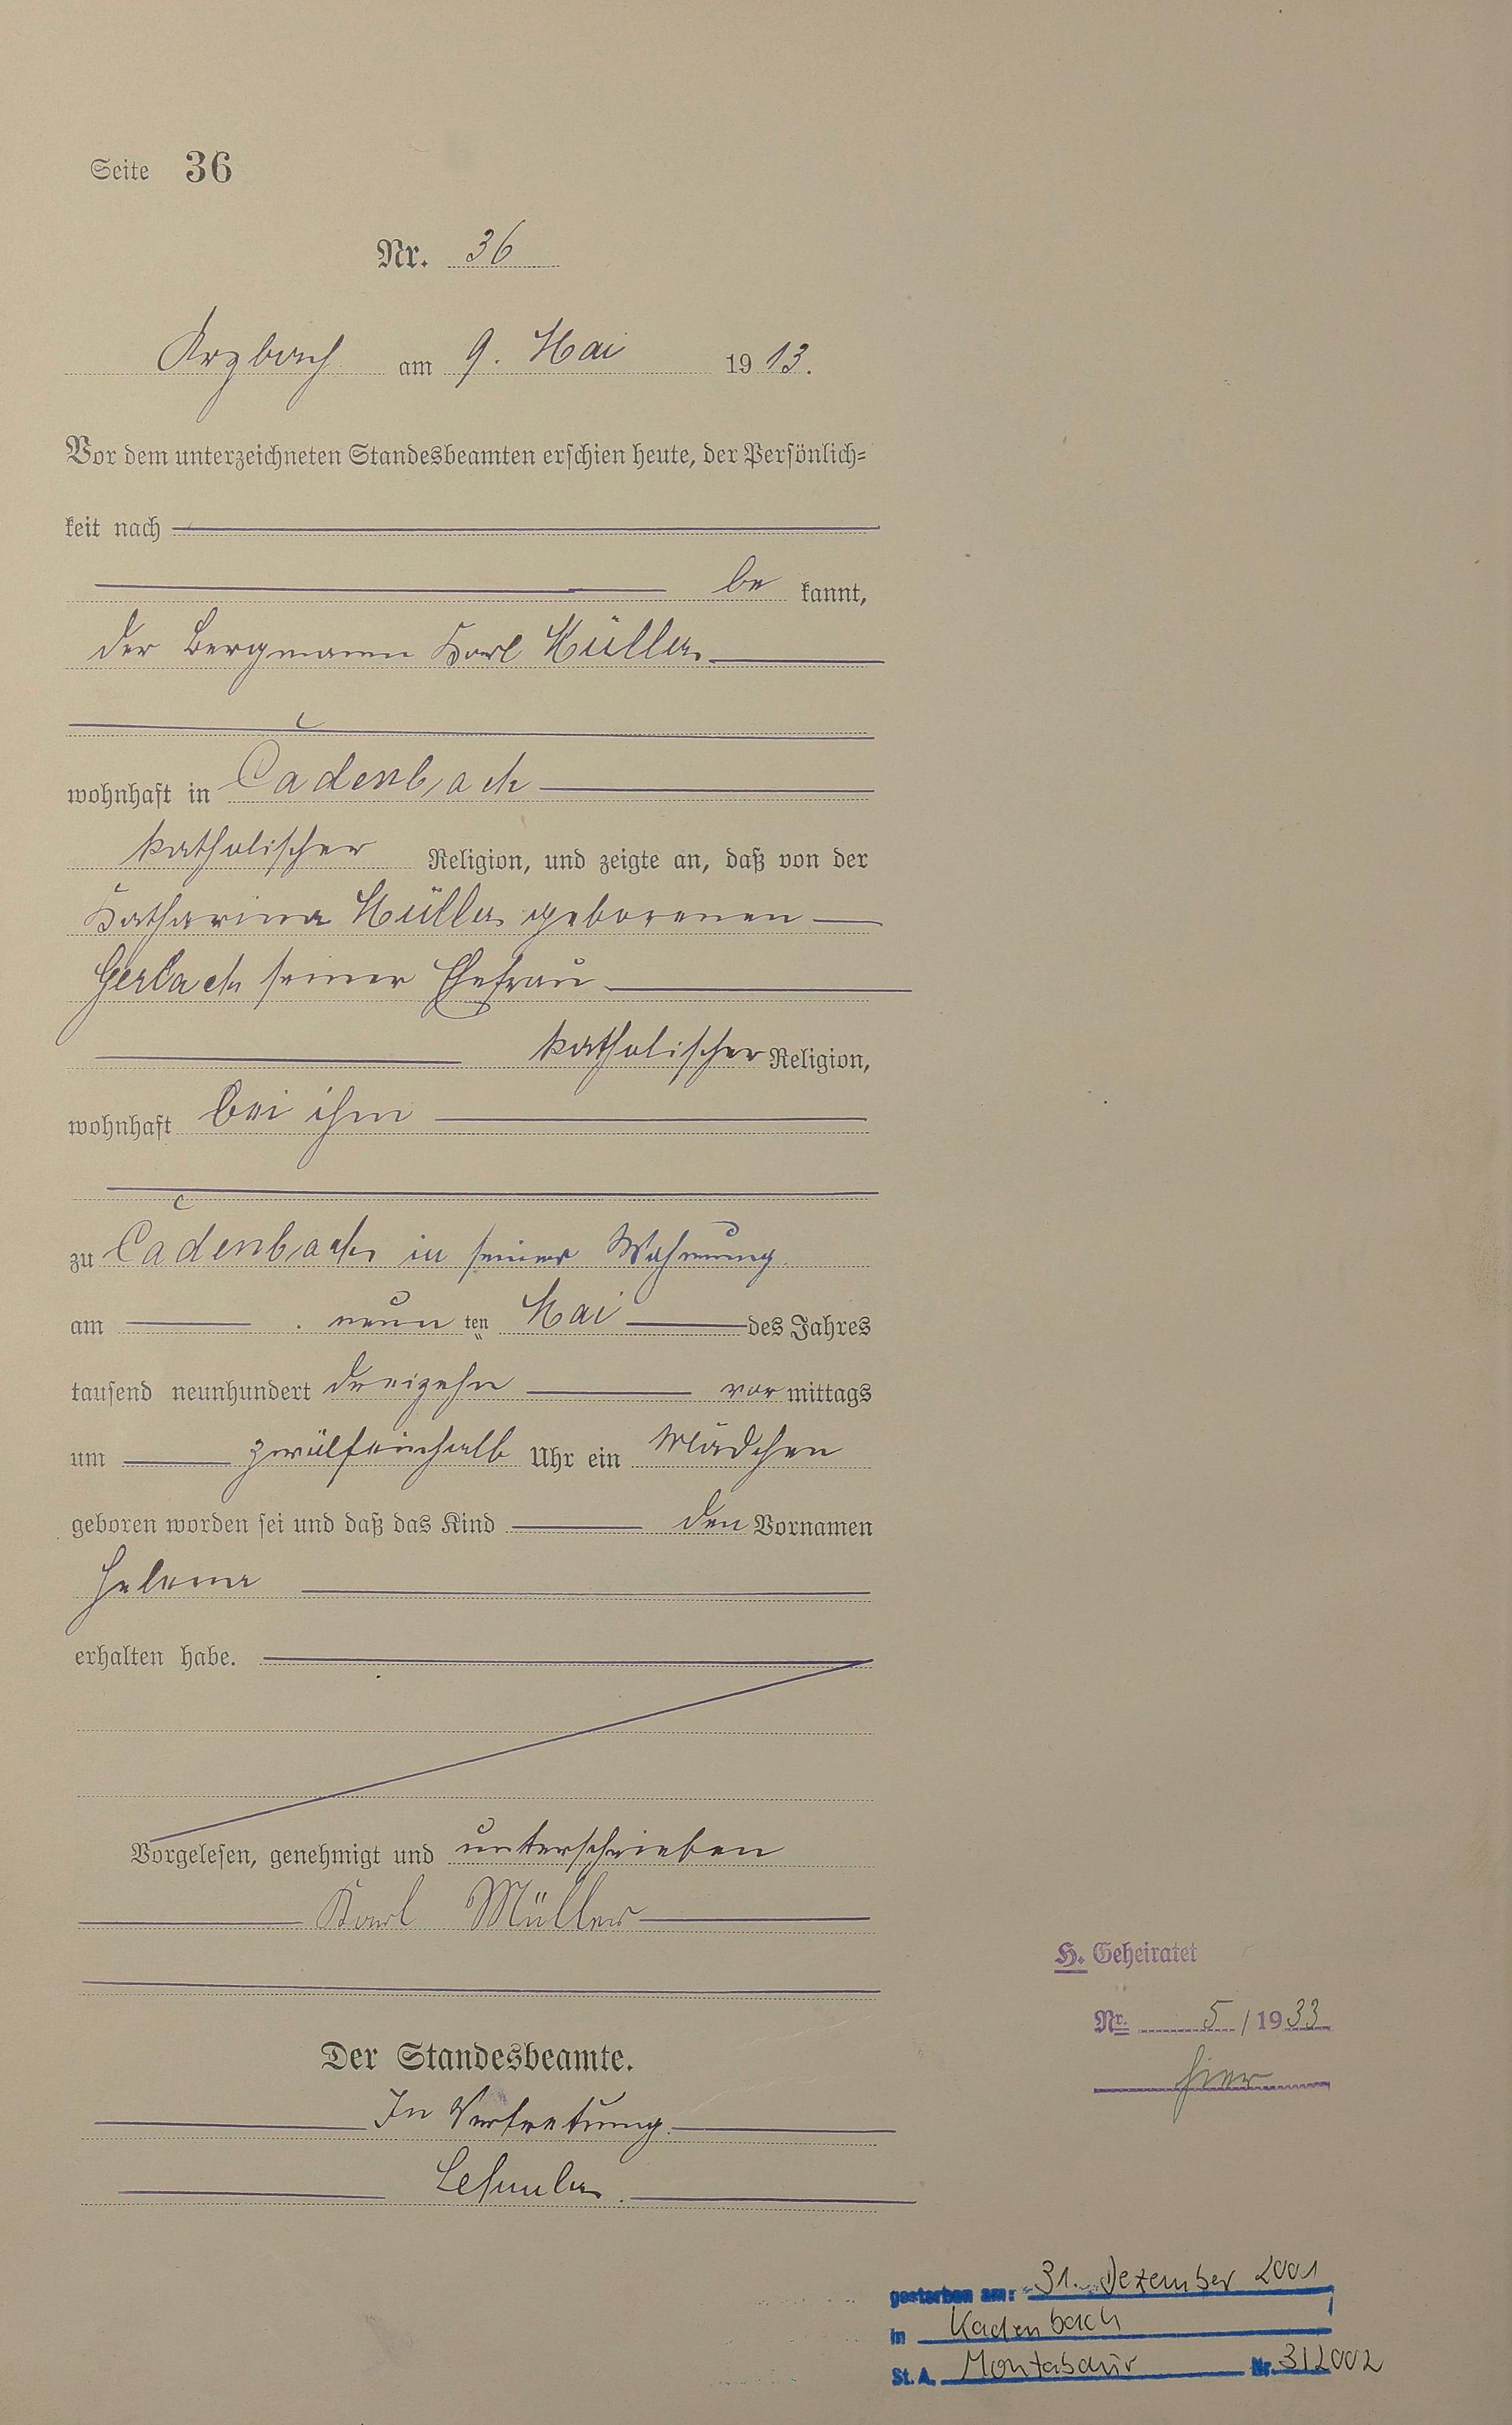 Seite 36
Nr. 36
Arzbach am 9. Mai 1913.
Vor dem unterzeichneten Standesbeamten erschien heute, der Persönlich=
keit nach
be kannt,
der Bergmann Karl Müller
wohnhaft in Cadenbach
katholischer Religion, und zeigte an, daß von der
Katharina Müller geborenen
Gerlach seiner Ehefrau
katholischer Religion,
wohnhaft bei ihm
zu Cadenbach in seiner Wohnung
am neun ten Mai des Jahres
tausend neunhundert dreizehn vor mittags
um zwölfeinhalb Uhr ein Mädchen
geboren worden sei und daß das Kind den Vornamen
Helena
erhalten habe.
Vorgelesen, genehmigt und unterschrieben
Karl Müller
Der Standesbeamte.
In Vertretung.
H. Geheiratet
Nr. 5/1933
hier
gestorben am: 31. Dezember 2001
in Kadenbach
St. A. Montabaur Nr. 3/2002